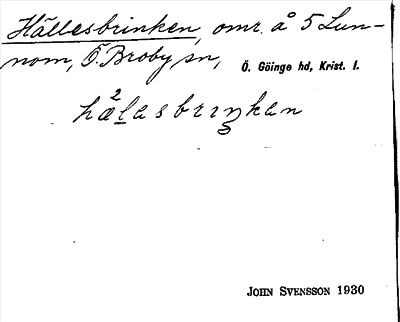 Hällesbrinken, omr. å 5 Lun-
nom, Ö. Broby sn, Ö. Göinge hd, Krist. l.
hæ²lasbrıŋkan
JOHN SVENSSON 1930